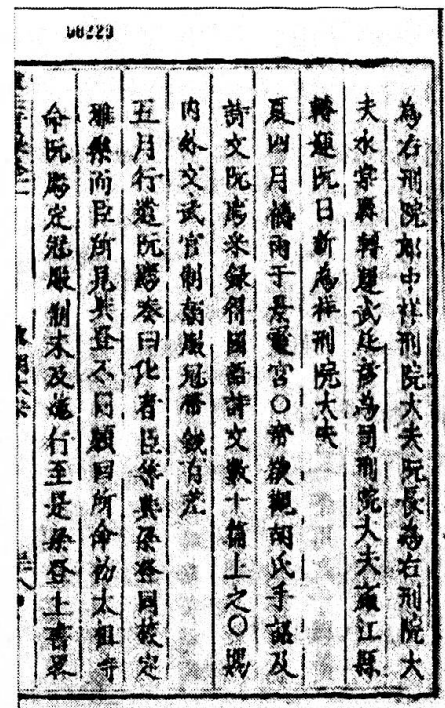 00229
為右刑院郎中祥刑院大夫阮長為右刑院大
夫水棠縣轉運武廷彥為司刑院大夫廉江縣
轉運阮日新為祥刑院大夫
夏四月禱雨于景靈宮○帝欲觀胡氏手詔及
詩文阮廌采録得國語詩文數十篇上之○賜
内外文武官制朝服冠帶銳有差
五月行遣阮廌奏曰比者臣等與梁登同校定
雅樂而臣所見與登不同願回所命初太祖嘗
命阮廌定冠服制未及施行至是梁登上書畧